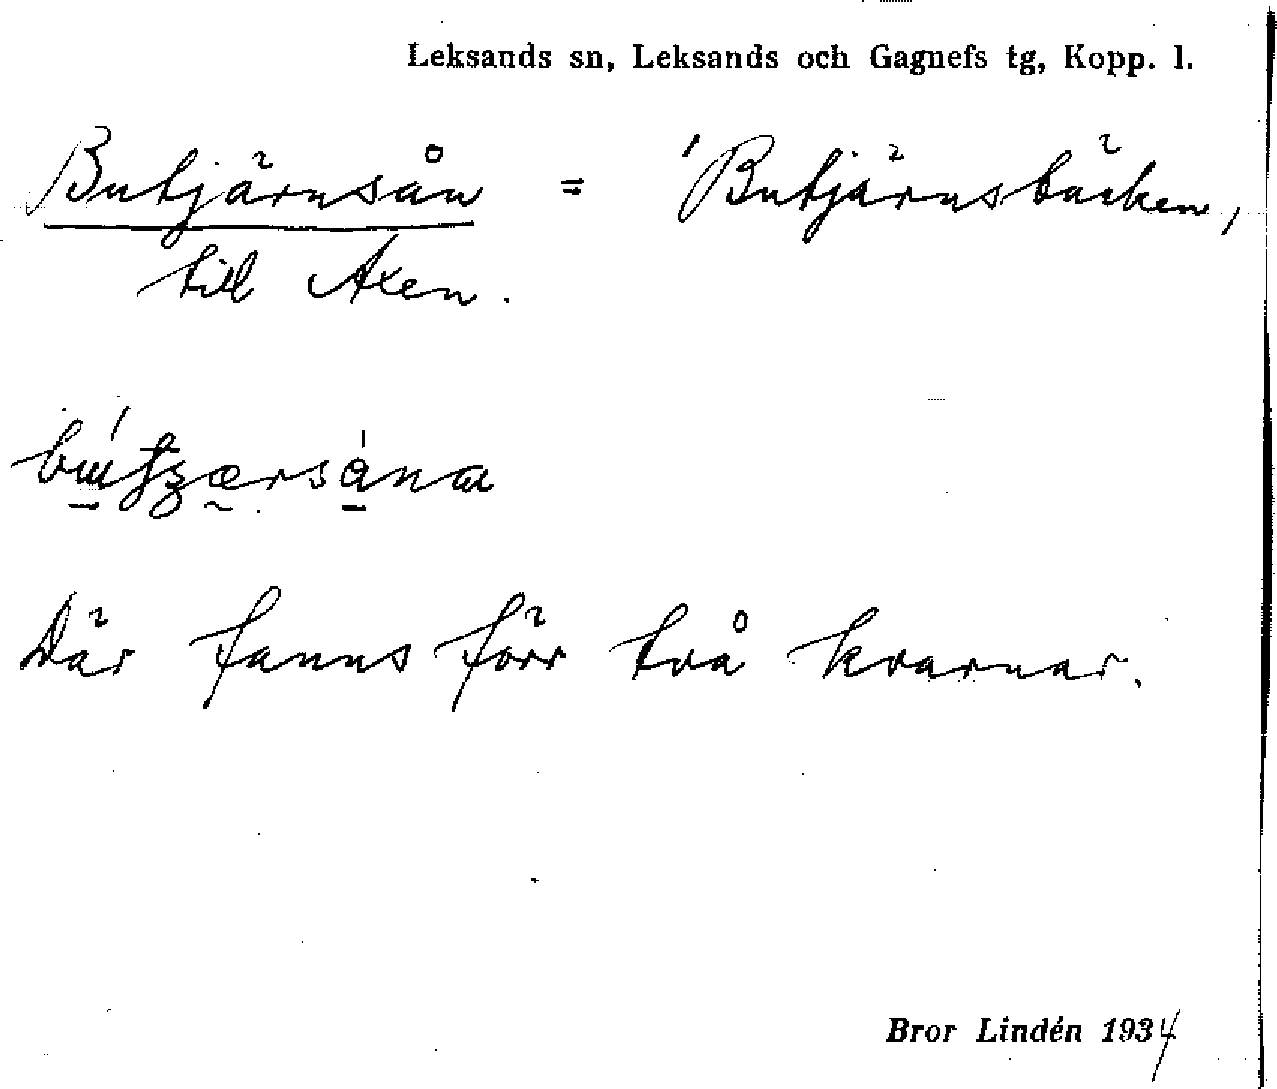 Leksands sn, Leksands och Gagnefs tg, Kopp. l.
Butjärnsån = 'Butjärnsbäcken,
till Axen.
Där fanns förr två kvarnar.
Bror Lindén 1934